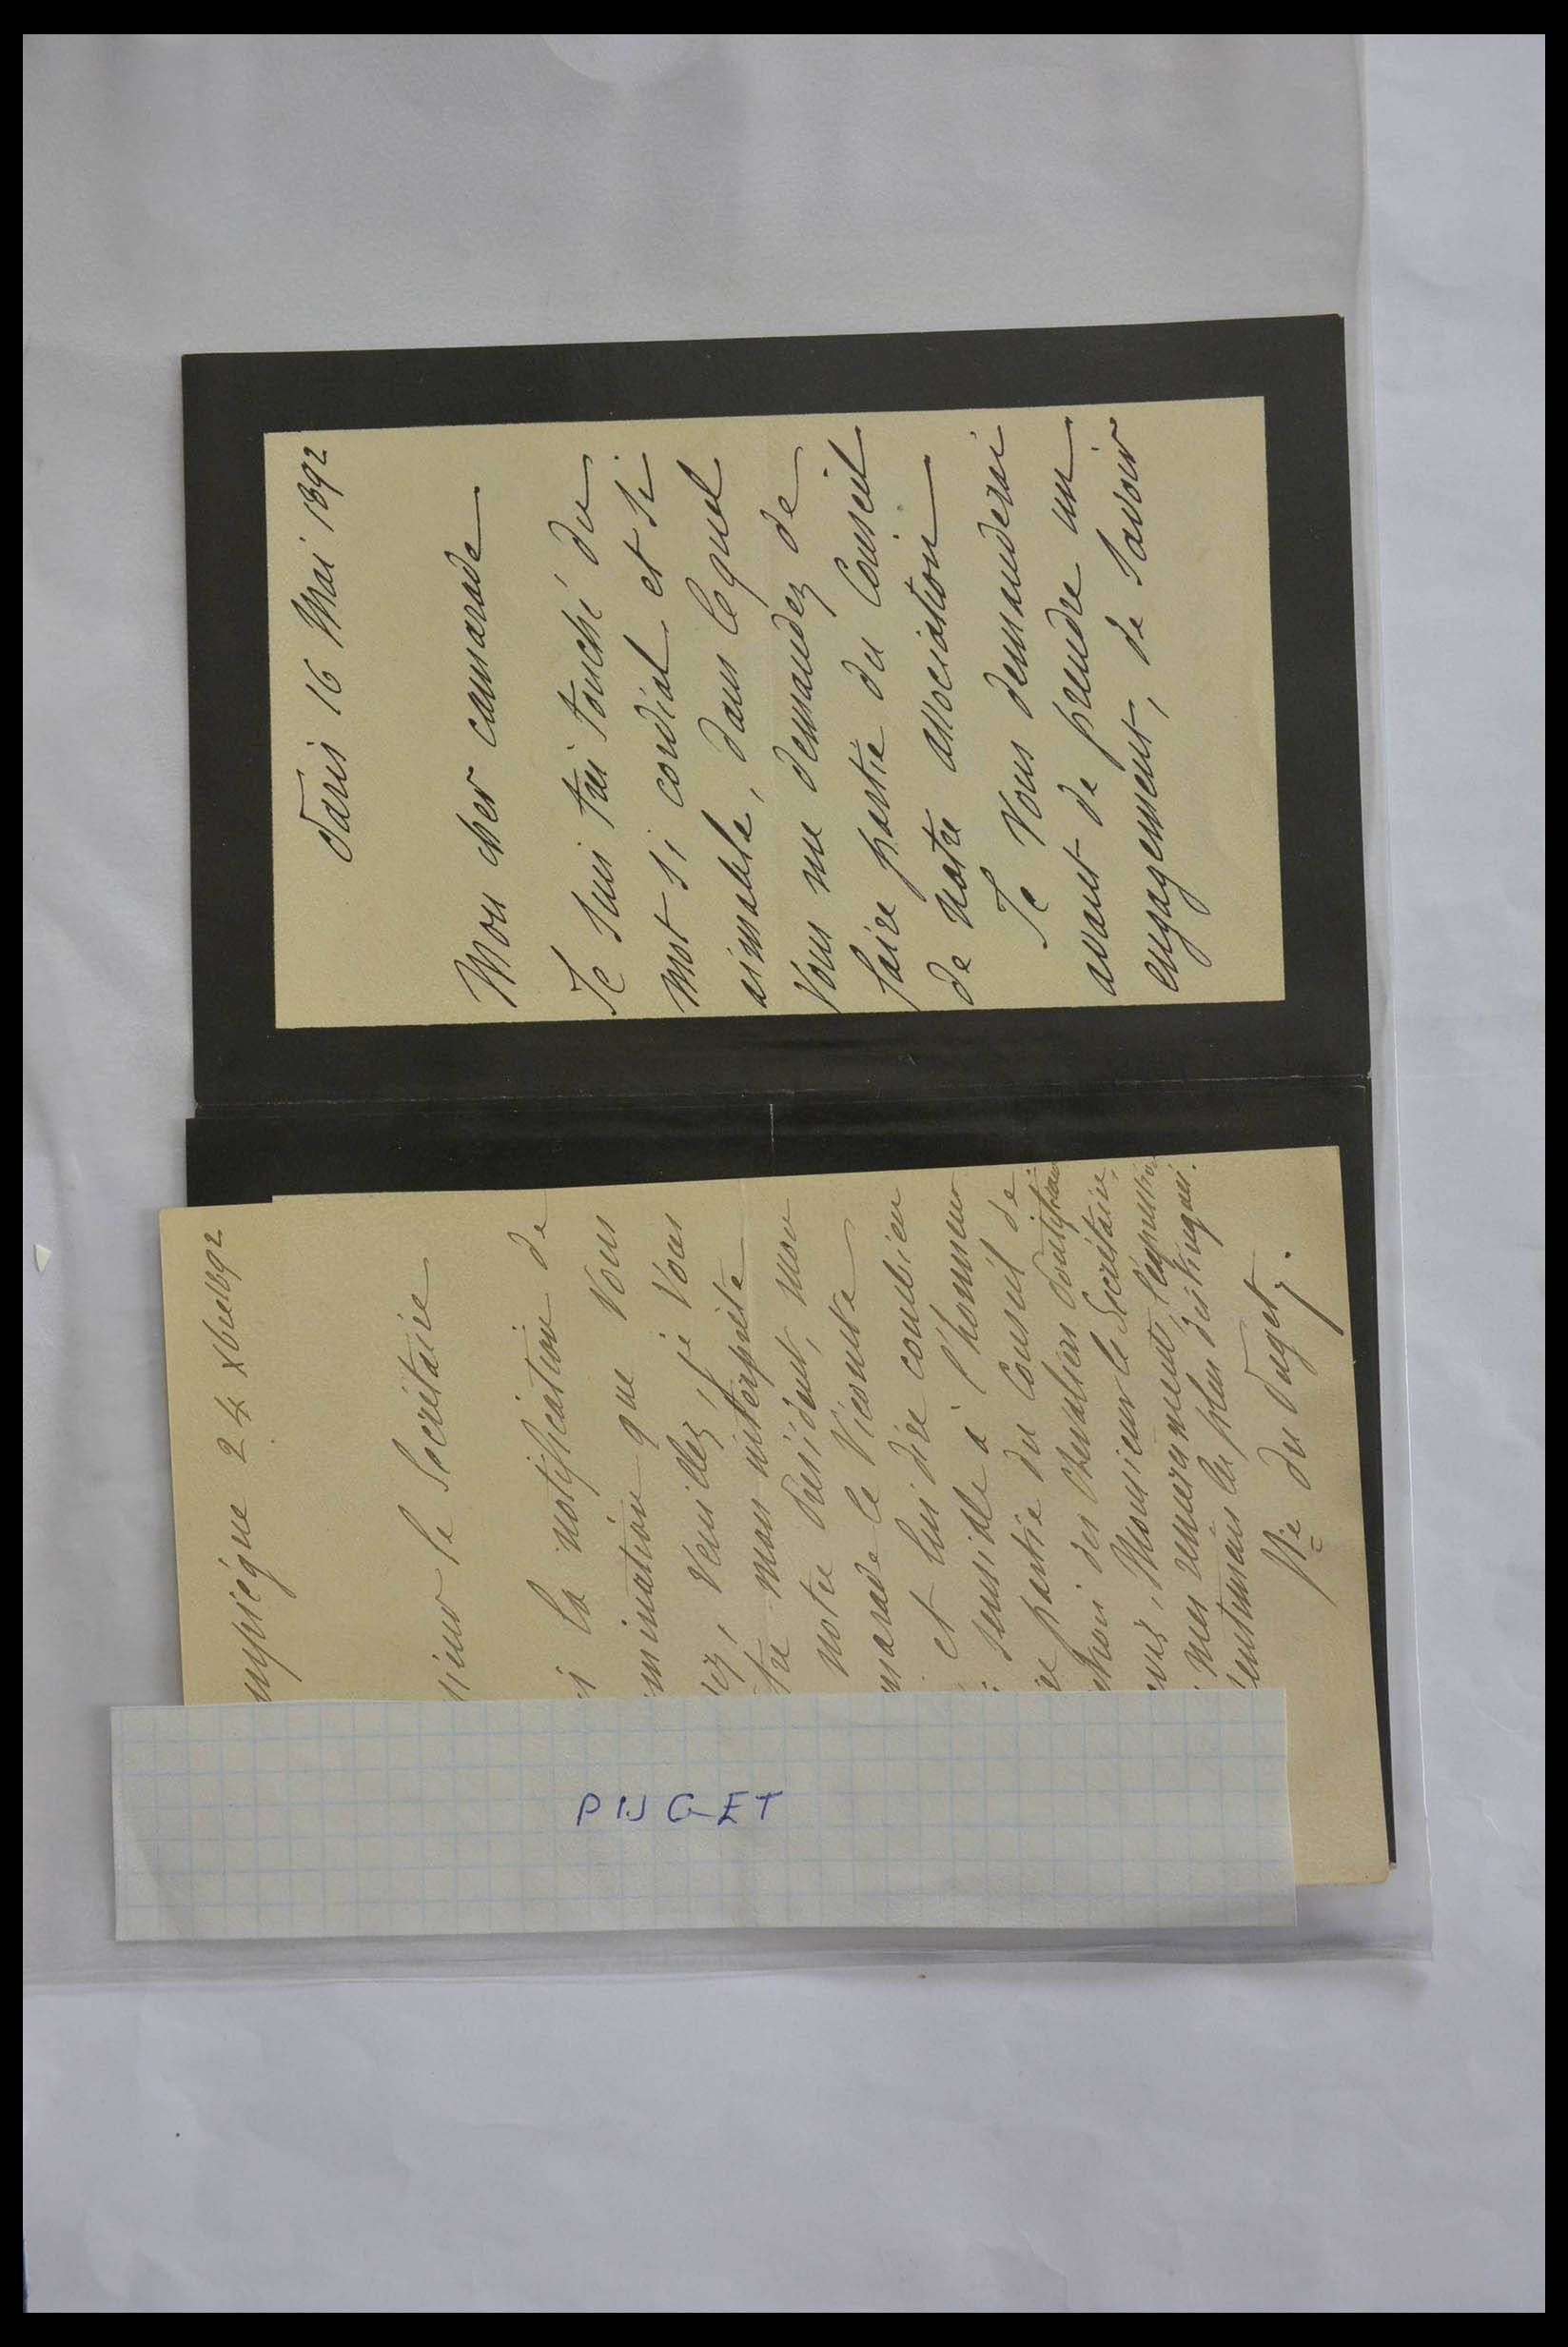 Paris 16 Mai 1892
Mon cher camarade
Je suis très touché du
mot si cordial et si
aimable, dans lequel
Vous me demandez de
faire partie du Conseil
de notre association
Je Vous demanderai
avant de prendre un
engagement, de savoir
24 Xbre 1892
le Secrétaire
la notification de
que Vous
Veuillez, je Vous
mon interprète
notre Président, mon
le Vicomte
et lui dire combien
sensible à l'honneur
partie du Conseil de
des Chevaliers Pontificaux
Monsieur le Secrétaire,
mes remerciements, l'expression
sentiments les plus distingués.
Vte du Puget.
PUGET